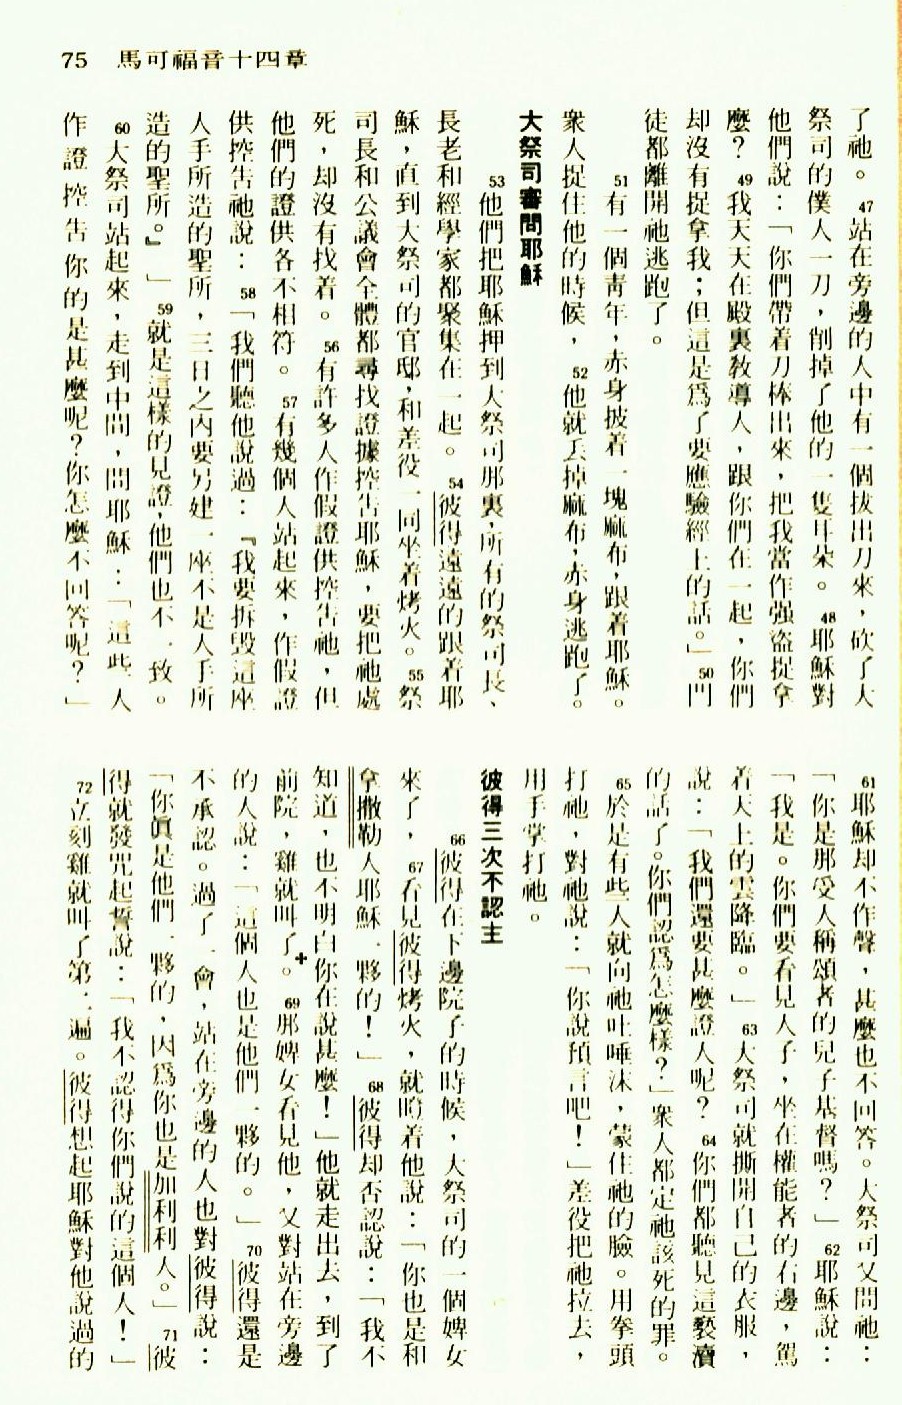 75　馬可福音十四章
了祂。 47 站在旁邊的人中有一個拔出刀來，砍了大
祭司的僕人一刀，削掉了他的一隻耳朵。 48 耶穌對
他們說：「你們帶着刀棒出來，把我當作强盜捉拿
麼？ 49 我天天在殿裏敎導人，跟你們在一起，你們
却沒有捉拿我；但這是爲了要應驗經上的話。」 50 門
徒都離開祂逃跑了。
51 有一個靑年，赤身披着一塊麻布，跟着耶穌。
衆人捉住他的時候， 52 他就丟掉麻布，赤身逃跑了。
大祭司審問耶穌
53 他們把耶穌押到大祭司那裏，所有的祭司長、
長老和經學家都聚集在一起。 54 彼得遠遠的跟着耶
穌，直到大祭司的官邸，和差役一同坐着烤火。 55 祭
司長和公議會全體都尋找證據控吿耶穌，要把祂處
死，却沒有找着。 56 有許多人作假證供控吿祂，但
他們的證供各不相符。 57 有幾個人站起來，作假證
供控吿祂說： 58 「我們聽他說過：『我要拆毀這座
人手所造的聖所，三日之內要另建一座不是人手所
造的聖所。』」 59 就是這樣的見證，他們也不一致。
60 大祭司站起來，走到中間，問耶穌：「這些人
作證控吿你的是甚麼呢？你怎麼不回答呢？」
61 耶穌却不作聲，甚麼也不回答。大祭司又問祂：
「你是那受人稱頌者的兒子基督嗎？」 62 耶穌說：
「我是。你們要看見人子，坐在權能者的右邊，駕
着天上的雲降臨。」 63 大祭司就撕開自己的衣服，
說：「我們還要甚麼證人呢？ 64 你們都聽見這褻瀆
的話了。你們認爲怎麼樣？」衆人都定祂該死的罪。
65 於是有些人就向祂吐唾沫，蒙住祂的臉。用拳頭
打祂，對祂說：「你說預言吧！」差役把祂拉去，
用手掌打祂。
彼得三次不認主
66 彼得在下邊院子的時候，大祭司的一個婢女
來了， 67 看見彼得烤火，就瞪着他說：「你也是和
拿撒勒人耶穌一夥的！」 68 彼得却否認說：「我不
知道，也不明白你在說甚麼！」他就走出去，到了
前院，雞就叫了✚。 69 那婢女看見他，又對站在旁邊
的人說：「這個人也是他們一夥的。」 70 彼得還是
不承認。過了一會，站在旁邊的人也對彼得說：
「你眞是他們一夥的，因爲你也是加利利人。」 71 彼
得就發咒起誓說：「我不認得你們說的這個人！」
72 立刻雞就叫了第二遍。彼得想起耶穌對他說過的